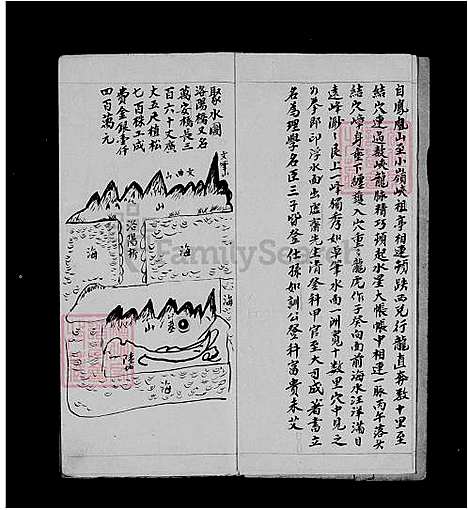 自鳳凰山至小嶺峽祖亭相連頓跌西兄行龍直奔數十里至
結穴重過數峽龍脉精巧頓起水星大帳帳中相連一脉丙午落头
結穴嶂身垂下纏護入穴重重龍虎作子癸向面前海水汪洋滿目
遠峰渺渺良上一峰獨秀如筆水面一洲寬十數里穴中見之
印浮水面出虛齋先生清登科甲官至大司成著書立
名為理學名臣三子皆登仕孫如訓公登科富貴未艾
聚水圖
洛陽橋又名
萬安橋長三
百六十丈廣
丈五尺植松
七百株工成
費金銀壹仟
四百萬元
文筆
文曲山
海
洛陽橋
海
海
山
墓
陸
海
FamilySearch